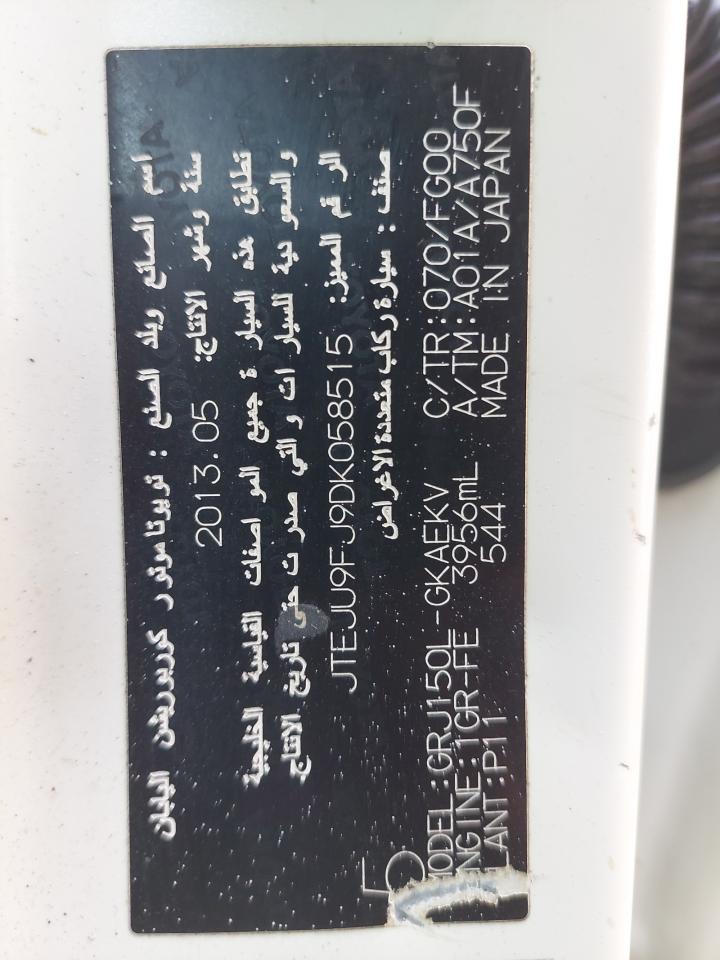 اسم الصانع وبلد الصنع : تويوتا موتور كوربوريشن اليابان
سنة وشهر الانتاج: 2013.05
تطابق هذه السيارة جميع المواصفات القياسية الخليجية
والسعودية للسيارات والتي صدرت حتى تاريخ الانتاج
الرقم المميز: JTEJU9FJ9DK058515
صنف : سيارة ركاب متعددة الاغراض
5
MODEL:GRJ150L-GKAEKV C/TR:070/FG00
ENGINE:1GR-FE 3956mL A/TM:A01A/A750F
PLANT:P11 544 MADE IN JAPAN